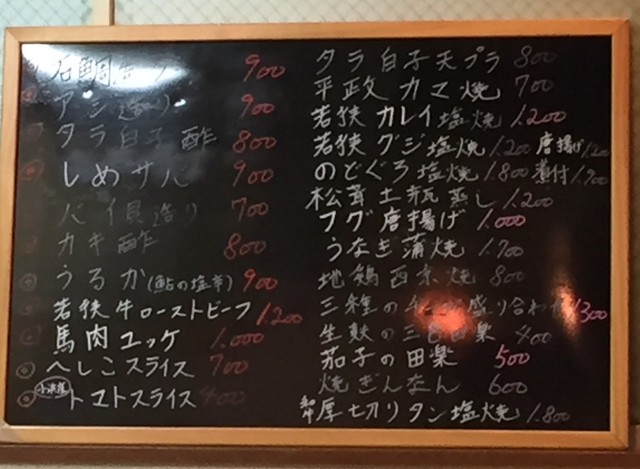 石鯛造り 900
アジ造り 900
タラ白子酢 800
しめサバ 900
バイ貝造り 700
カキ酢 800
うるか(鮎の塩辛) 900
若狭牛ローストビーフ 1.200
馬肉ユッケ 1.000
へしこスライス 700
トマトスライス 400
タラ白子天プラ 800
平政カマ焼 700
若狭カレイ塩焼 1.200
若狭グジ塩焼 1.200 唐揚げ 1.200
のどぐろ塩焼 1.800 煮付 1.900
松茸土瓶蒸し 1.200
フグ唐揚げ 1.000
うなぎ蒲焼 1.700
地鶏西京焼 800
三種の盛り合わせ 1300
生麩の三色田楽 400
茄子の田楽 500
焼ぎんなん 600
厚切りタン塩焼 1.800